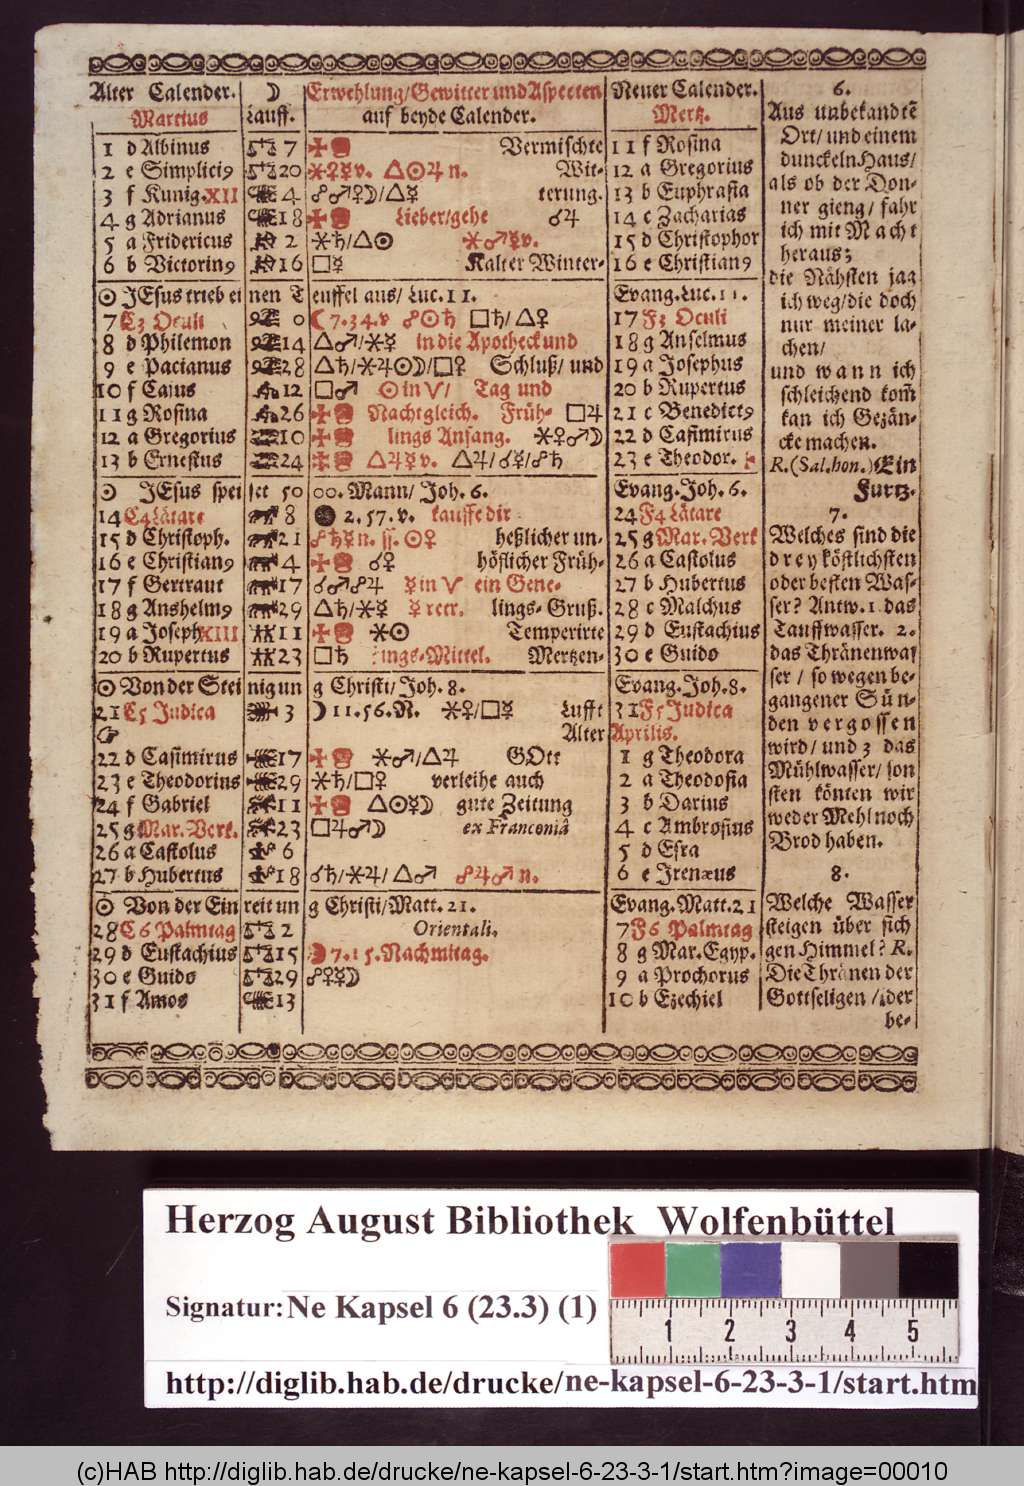 Alter Calender. ☽ Erwehlung/Gewitter und Aspecten Neuer Calender.
Martius Lauff. auf beyde Calender. Mertz.
1 d Albinus 7 Vermischte 11 f Rosina
2 e Simplici9 20 ⚹♀☿v. △☉♃ n. Wit- 12 a Gregorius
3 f Kunig. XII 4 ☍♂♀☽/△☿ terung. 13 b Euphrasia
4 g Adrianus 18 Lieber/gehe ☌♃ 14 c Zacharias
5 a Fridericus 2 ⚹♄/△☉ ⚹♂☿v. 15 d Christophor
6 b Victorin9 16 □☿ Kalter Winter- 16 e Christian9
☉ JEsus trieb ei nen Teuffel aus/ Luc. 11. Evang. Luc. 11.
7 C3 Oculi 0 ☾ 7.34.v ☍☉♄ □♄/△♀ 17 F3 Oculi
8 d Philemon 14 △♂/⚹☿ in die Apotheck und 18 g Anselmus
9 e Pacianus 28 △♄/⚹♃☉☽/□♀ Schluß/ und 19 a Josephus
10 f Cajus 12 □♂ ☉ in ♈/ Tag und 20 b Rupertus
11 g Rosina 26 Nachtgleich. Früh- □♃ 21 c Benedict9
12 a Gregorius 10 lings Anfang. ⚹♀♂☽ 22 d Casimirus
13 b Ernestus 24 △♃☿ v. △♃/☌☿/☍♄ 23 e Theodor.
☉ JEsus spei set 5000. Mann/ Joh. 6. Evang. Joh. 6.
14 C4 Lätare 8 2.57.v. kauffe dir 24 F4 Lätare
15 d Christoph. 21 ☍♄☿ n. ☉♀ heßlicher un- 25 g Mar. Verk
16 e Christian9 4 ☌♀ höflicher Früh- 26 a Castolus
17 f Gertraut 17 ☌♂☍♃ ☿ in ♈ ein Gene- 27 b Hubertus
18 g Anshelm9 29 △♄/⚹☿ ☿ retr. lings-Gruß. 28 c Malchus
19 a Joseph XIII 11 ⚹☉ Temperirte 29 d Eustachius
20 b Rupertus 23 □♄ ings-Mittel. Mertzen- 30 e Guido
☉ Von der Stei nigun g Christi/ Joh. 8. Evang. Joh. 8.
21 C5 Judica 3 ☽ 11.56.N. ⚹♀/□☿ Lufft 31 F5 Judica
☞ Alter Aprilis.
22 d Casimirus 17 ⚹♂/△♃ GOtt 1 g Theodora
23 e Theodorins 29 ⚹♄/□♀ verleihe auch 2 a Theodosia
24 f Gabriel 11 △☉☿☽ gute Zeitung 3 b Darius
25 g Mar. Verk. 23 □♃♂☽ ex Franconiâ 4 c Ambrosius
26 a Castolus 6 5 d Esra
27 b Hubertus 18 ☌♄/⚹♃/△♂ ☍♃♂ n. 6 e Irenæus
☉ Von der Ein reit un g Christi/ Matt. 21. Evang. Matt. 21
28 C6 Palmtag 2 Orientali. 7 F6 Palmtag
29 d Eustachius 15 7.15. Nachmitag. 8 g Mar. Egyp.
30 e Guido 29 ☍♀☿☽ 9 a Prochorus
31 f Amos 13 10 b Ezechiel
6.
Aus unbekandtē
Ort/ und einem
dunckeln Haus/
als ob der Don-
ner gieng/ fahr
ich mit Macht
heraus;
die Nähsten jag
ich weg/die doch
nur meiner la-
chen/
und wann ich
schleichend kom̃
kan ich Gezän-
cke machen.
R. (Sal. hon.) Ein
Furtz.
7.
Welches sind die
drey köstlichsten
oder besten Was-
ser? Antw. 1. das
Tauffwasser. 2.
das Thränenwas
ser / so wegen be-
gangener Sün-
den vergossen
wird/ und 3 das
Mühlwasser/ son
sten könten wir
weder Mehl noch
Brod haben.
8.
Welche Wasser
steigen über sich
gen Himmel? R.
Die Thränen der
Gottseligen / der
be-
Herzog August Bibliothek Wolfenbüttel
Signatur: Ne Kapsel 6 (23.3) (1)
1 2 3 4 5
http://diglib.hab.de/drucke/ne-kapsel-6-23-3-1/start.htm
(c)HAB http://diglib.hab.de/drucke/ne-kapsel-6-23-3-1/start.htm?image=00010